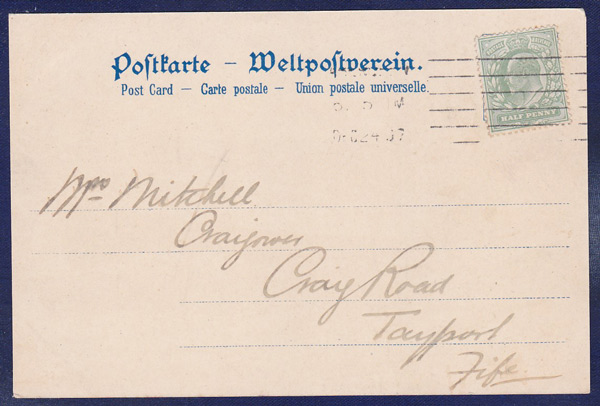 Postkarte – Weltpostverein.
Post Card – Carte postale – Union postale universelle.
HALF PENNY
Mrs Mitchell
Craigower
Craig Road
Tayport
Fife